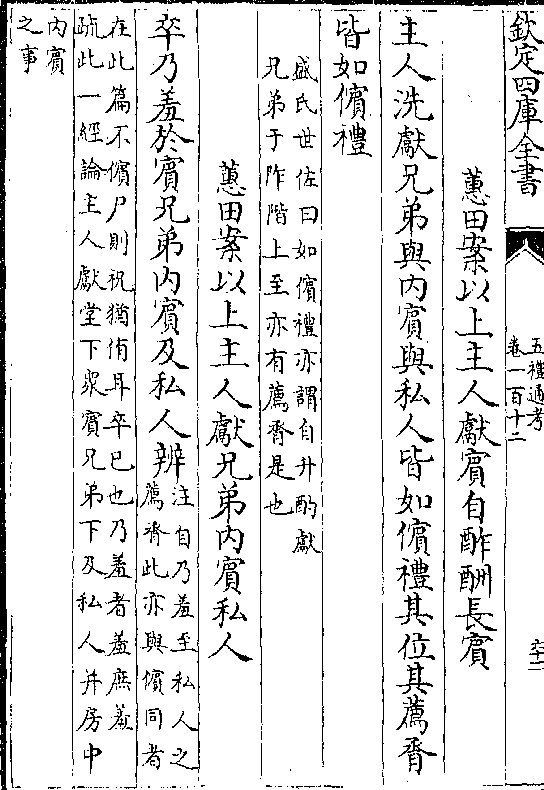 欽定四庫全書
五禮通考
卷一百十二
六十二
蕙田案以上主人獻賓自酢酬長賓
主人洗獻兄弟與内賓與私人皆如儐禮其位其薦脀
皆如儐禮
盛氏世佐曰如儐禮亦謂自升酌獻
兄弟于阼階上至亦有薦脀是也
蕙田案以上主人獻兄弟内賓私人
卒乃羞於賓兄弟内賓及私人辨
注自乃羞至私人之
薦脀此亦與儐同者
在此篇不儐尸則祝猶侑耳卒已也乃羞者羞庶羞
疏此一經論主人獻堂下衆賓兄弟下及私人并房中
内賓
之事